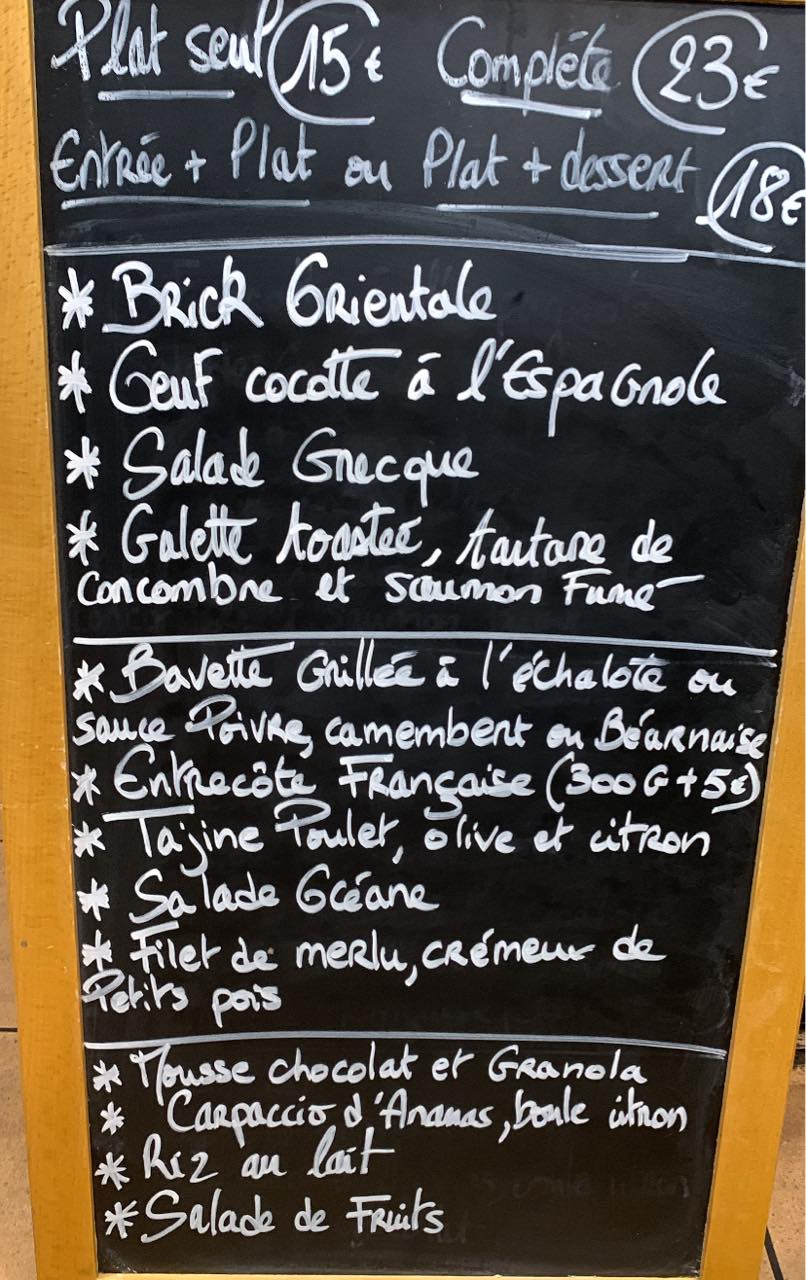 Plat seul 15€ Complète 23€
Entrée + Plat ou Plat + dessert 18€
* Brick Orientale
* Oeuf cocotte à l'Espagnole
* Salade Grecque
* Galette toastée, tartare de
concombre et saumon Fumé
* Bavette Grillée à l'échalote ou
sauce Poivre, camembert ou Béarnaise
* Entrecôte Française (300 G + 5€)
* Tajine Poulet, olive et citron
* Salade Océane
* Filet de merlu, crémeux de
Petits pois
* Mousse chocolat et Granola
* Carpaccio d'Ananas, boule citron
* Riz au lait
* Salade de Fruits